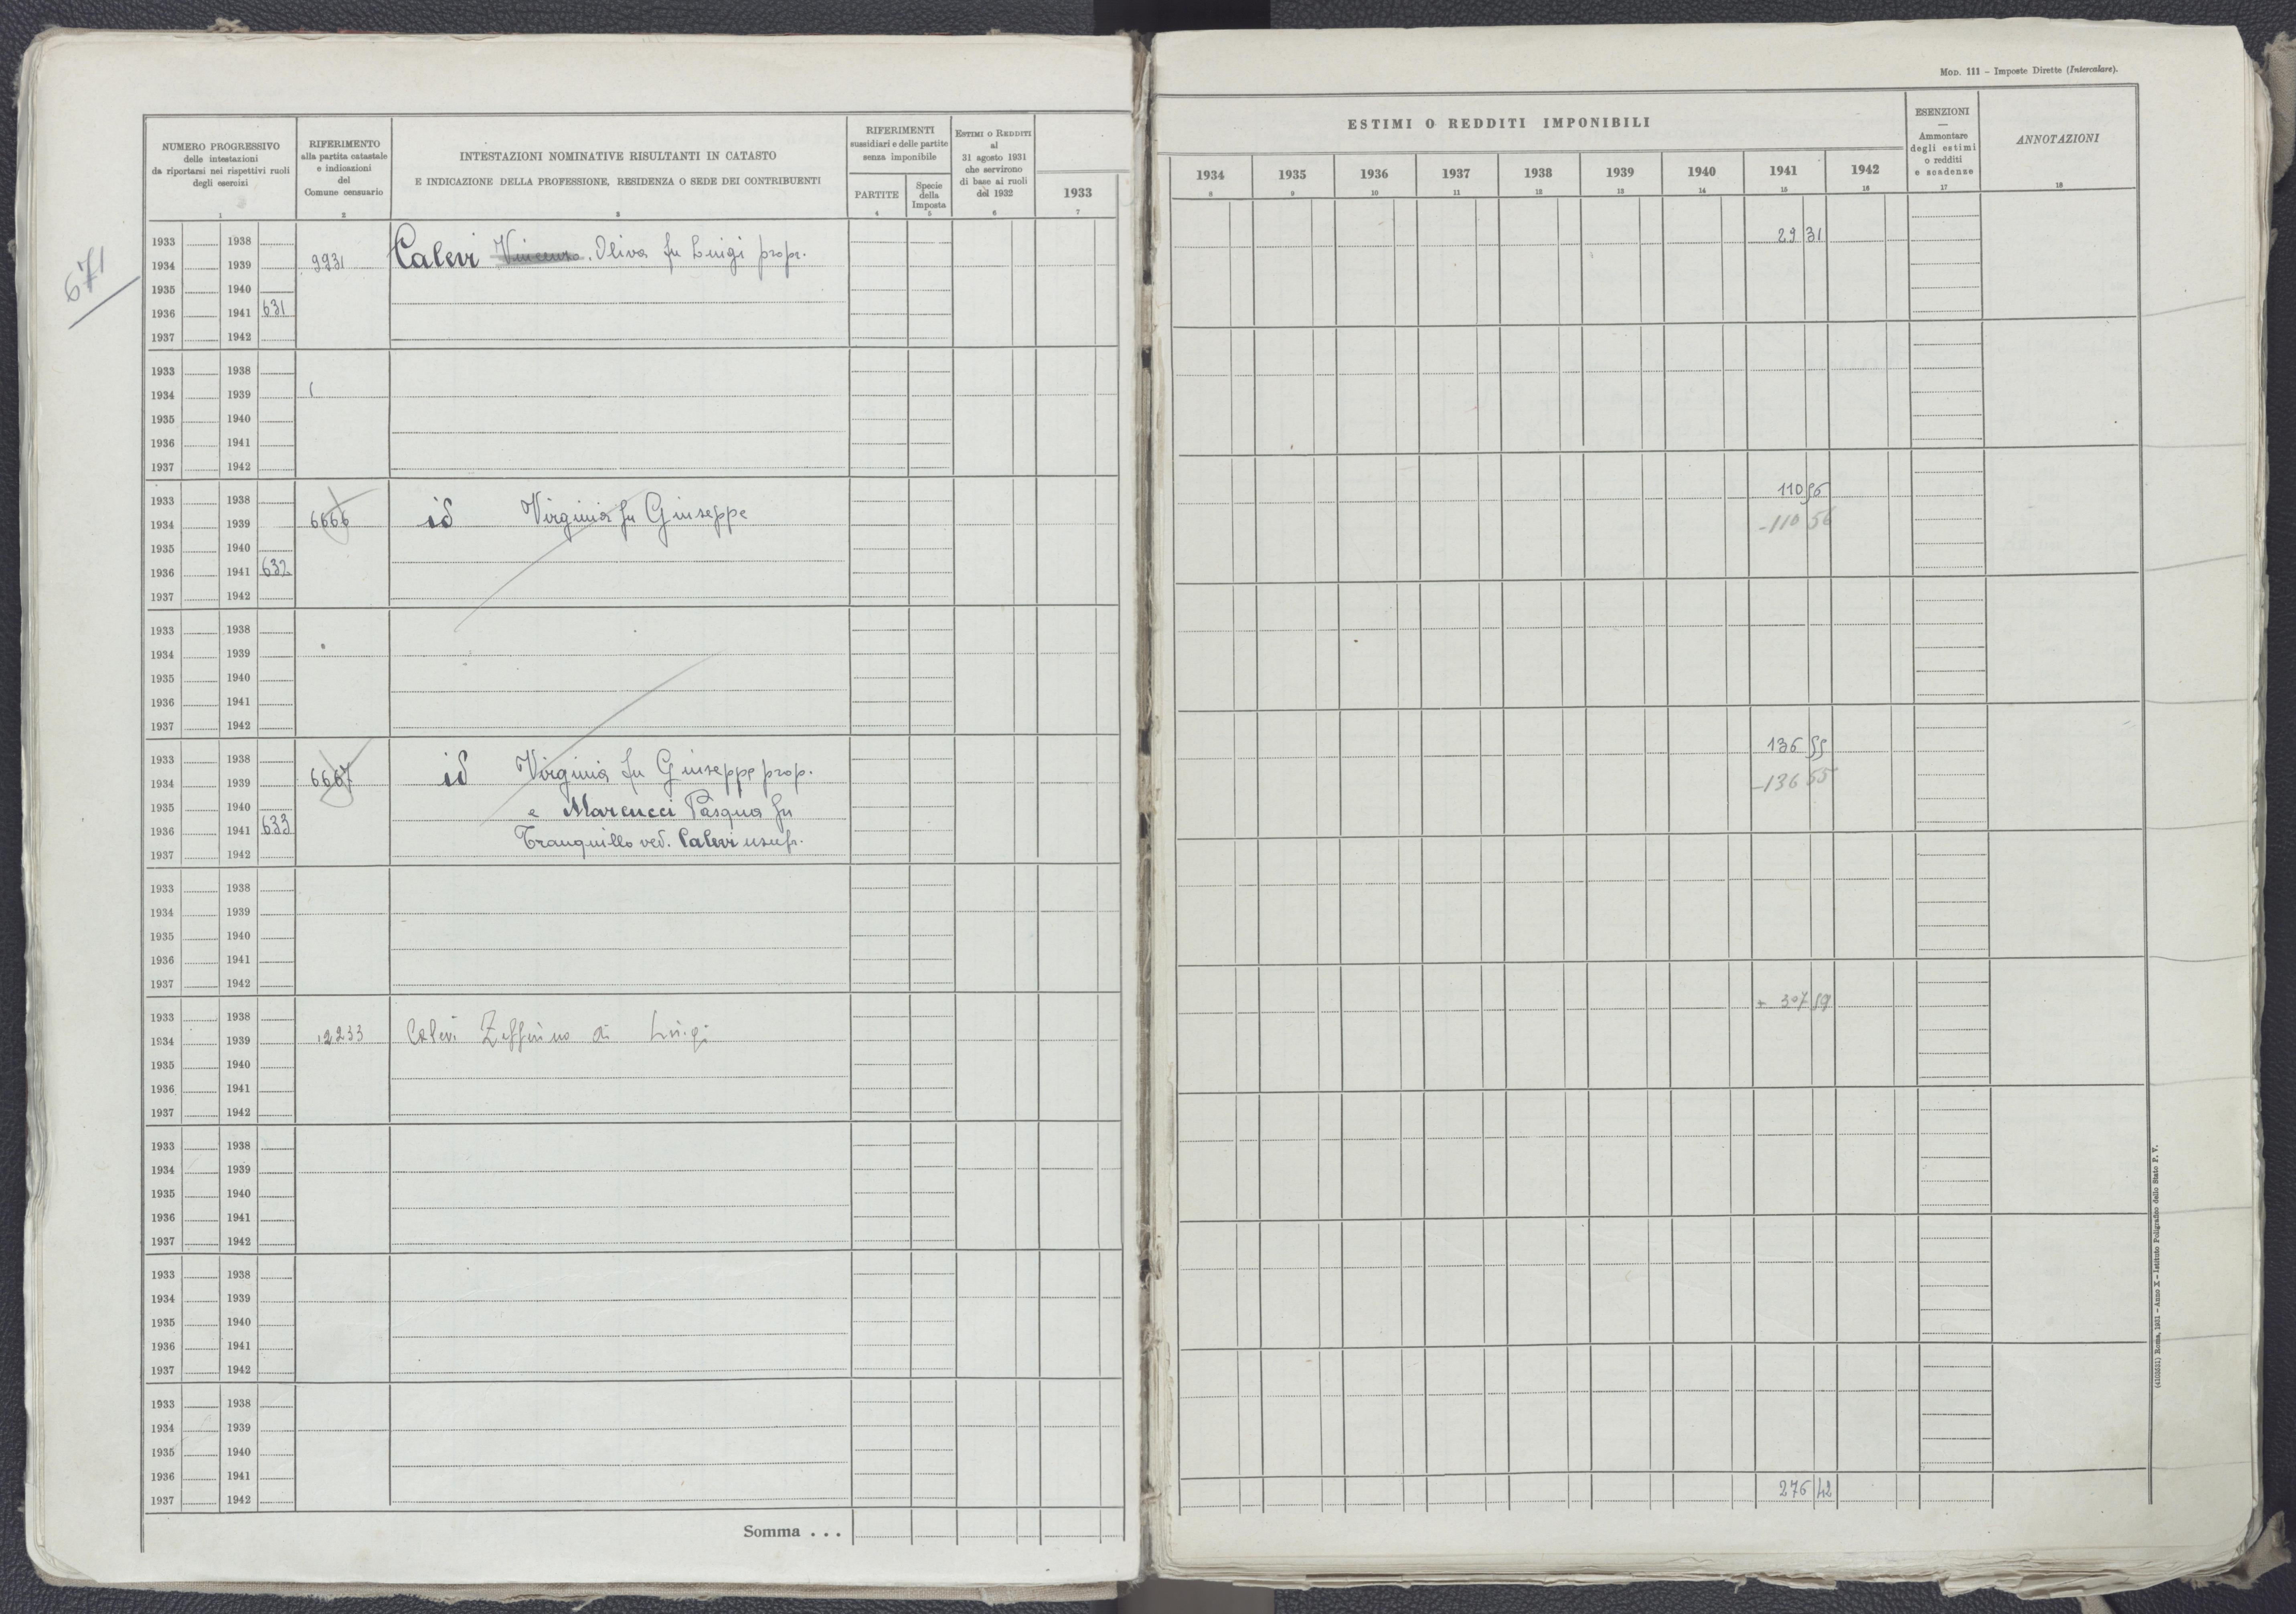 MOD. 111 – Imposte Dirette (Intercalare).
NUMERO PROGRESSIVO
delle intestazioni
da riportarsi nei rispettivi ruoli
degli esercizi
1
RIFERIMENTO
alla partita catastale
e indicazioni
del
Comune censuario
2
INTESTAZIONI NOMINATIVE RISULTANTI IN CATASTO
E INDICAZIONE DELLA PROFESSIONE, RESIDENZA O SEDE DEI CONTRIBUENTI
3
RIFERIMENTI
sussidiari e delle partite
senza imponibile
PARTITE
4
Specie
della
Imposta
5
ESTIMI O REDDITI
al
31 agosto 1931
che servirono
di base ai ruoli
del 1932
6
1933
7
ESTIMI O REDDITI IMPONIBILI
1934 1935 1936 1937 1938 1939 1940 1941 1942
8 9 10 11 12 13 14 15 16
ESENZIONI
—
Ammontare
degli estimi
o redditi
e scadenze
17
ANNOTAZIONI
18
671
1933 1938
1934 1939 9931 Calevi Vincenzo. Oliva fu Luigi propr. 29 31
1935 1940
1936 1941 631
1937 1942
1933 1938
1934 1939
1935 1940
1936 1941
1937 1942
1933 1938 110 56
1934 1939 6666 id Virginia fu Giuseppe -110 56
1935 1940
1936 1941 632
1937 1942
1933 1938
1934 1939
1935 1940
1936 1941
1937 1942
1933 1938 136 55
1934 1939 6667 id Virginia fu Giuseppe prop. -136 55
1935 1940 e Marcucci Pasqua fu
1936 1941 633
1937 1942 Tranquillo ved. Calevi usufr.
1933 1938
1934 1939
1935 1940
1936 1941
1937 1942
1933 1938 + 307 59
1934 1939 12233 Calevi Zeffirino di Luigi
1935 1940
1936 1941
1937 1942
1933 1938
1934 1939
1935 1940
1936 1941
1937 1942
1933 1938
1934 1939
1935 1940
1936 1941
1937 1942
1933 1938
1934 1939
1935 1940
1936 1941
1937 1942 276 42
Somma . . .
Roma, 1931 – Anno X – Istituto Poligrafico dello Stato P. V.